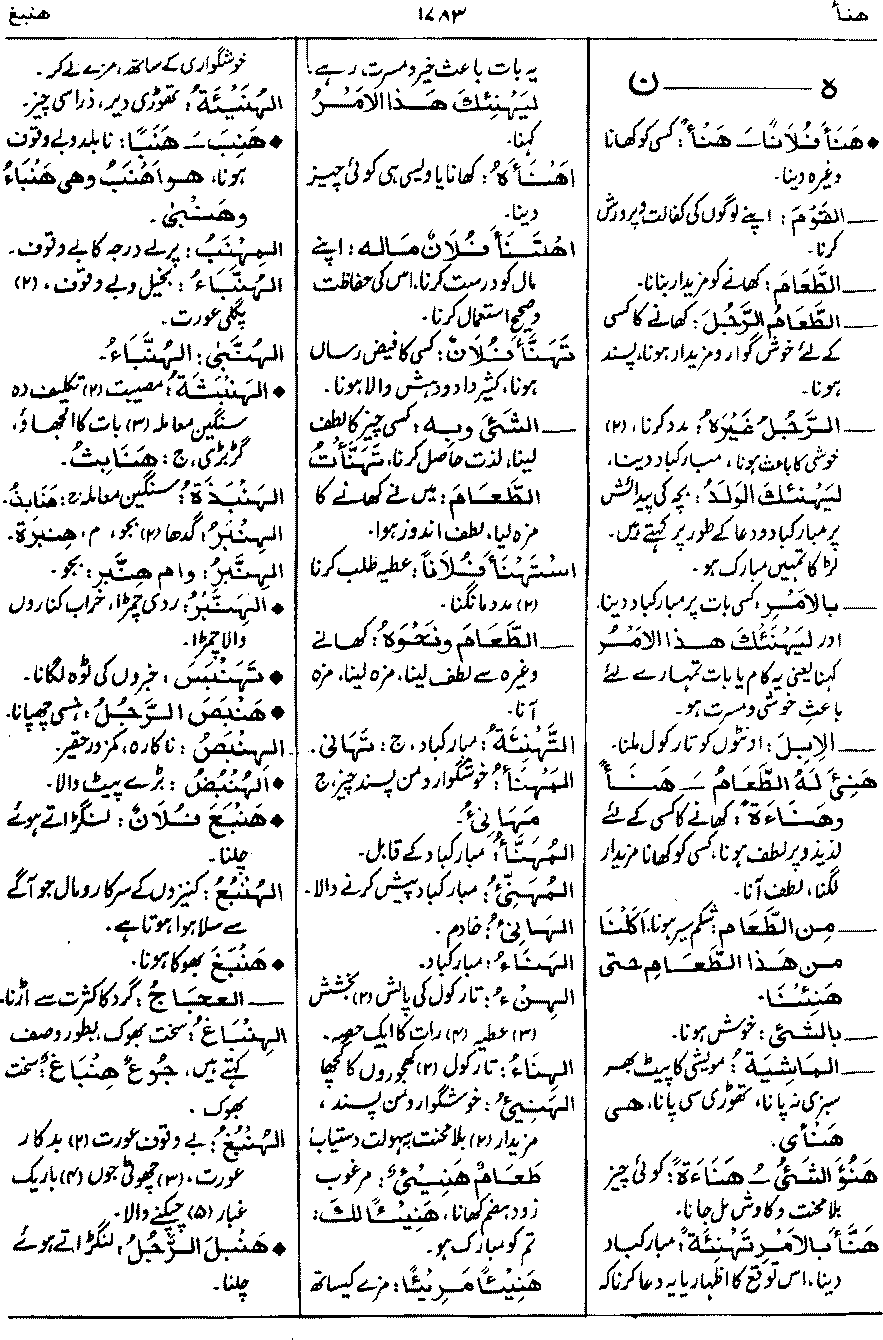 هنأ
۱۷۸۳
هنبغ
ہ ——— ن
• هَنَأَ فُلَانًا ـَ هَنْأً: کسی کو کھانا
وغیرہ دینا۔
— القَوْمَ: اپنے لوگوں کی کفالت و پرورش
کرنا۔
— الطَّعَامَ: کھانے کو مزیدار بنانا۔
— الطَّعَامُ الرَّجُلَ: کھانے کا کسی
کے لئے خوش گوار و مزیدار ہونا، پسند
ہونا۔
— الرَّجُلُ غَيْرَهُ: مدد کرنا، (۲)
خوشی کا باعث ہونا، مبارکباد دینا،
لِيَهْنِئْكَ الوَلَدُ: بچہ کی پیدائش
پر مبارکباد و دعا کے طور پر کہتے ہیں۔
لڑکا تمہیں مبارک ہو۔
— بالأمْرِ: کسی بات پر مبارکباد دینا،
اور لِيَهْنِئْكَ هَذَا الأمْرُ
کہنا یعنی یہ کام یا بات تمہارے لئے
باعثِ خوشی و مسرت ہو۔
— الإبِلَ: اونٹوں کو تارکول ملنا۔
هَنِئَ لَهُ الطَّعَامُ ـَ هَنَأً
وهَنَاءَةً: کھانے کا کسی کے لئے
لذیذ و پر لطف ہونا، کسی کو کھانا مزیدار
لگنا، لطف آنا۔
— مِن الطَّعَامِ: شکم سیر ہونا، أكَلْنَا
من هَذَا الطَّعَامِ حتى
هَنِئْنَا۔
— بالشئِ: خوش ہونا۔
— الماشِيَةُ: مویشی کا پیٹ بھر
سبزی نہ پانا، تھوڑی سی پانا، هي
هَنْأَى۔
هَنُؤَ الشَّئُ ـُ هَنَاءَةً: کوئی چیز
بلا محنت و کاوش مل جانا۔
هَنَّأَ بالأمْرِ تَهْنِئَةً: مبارکباد
دینا، اس توقع کا اظہار یا یہ دعا کرنا کہ
یہ بات باعث خیر و مسرت رہے،
لِيَهْنِئْكَ هَذَا الأمْرُ
کہنا۔
أهْنَأَهُ: کھانا یا ویسی ہی کوئی چیز
دینا۔
اهْتَنَأَ فُلَانٌ مَاله: اپنے
مال کو درست کرنا، اس کی حفاظت
و صحیح استعمال کرنا۔
تَهَنَّأَ فُلَانٌ: کسی کا فیض رساں
ہونا، کثیر داد و دہش والا ہونا۔
— الشئَ وبِه: کسی چیز کا لطف
لینا، لذت حاصل کرنا، تَهَنَّأْتُ
الطَّعَامَ: میں نے کھانے کا
مزہ لیا، لطف اندوز ہوا۔
اسْتَهْنَأَ فُلَاناً: عطیہ طلب کرنا
(۲) مدد مانگنا۔
— الطَّعَامَ ونَحْوَهُ: کھانے
وغیرہ سے لطف لینا، مزہ لینا، مزہ
آنا۔
التَّهْنِئَةُ: مبارکباد، ج: تَهَانِي۔
المَهْنَأُ: خوشگوار و من پسند چیز، ج
مَهَانِئُ۔
المُهَنَّأُ: مبارکباد کے قابل۔
المُهَنِّئُ: مبارکباد پیش کرنے والا۔
الهَانِئُ: خادم۔
الهَنَاءُ: مبارکباد۔
الهِنْءُ: تارکول کی پالش (۲) بخشش
(۳) عطیہ (۴) رات کا ایک حصہ۔
الهِنَاءُ: تارکول (۲) کھجوروں کا گچھا
الهَنِيئُ: خوشگوار و من پسند،
مزیدار (۲) بلا محنت بسہولت دستیاب
طَعَامٌ هَنِيْئٌ: مرغوب
زود ہضم کھانا، هَنِيْئًا لَكَ:
تم کو مبارک ہو۔
هَنِيْئًا مَرِيْئًا: مزے کیساتھ
خوشگواری کے ساتھ، مزے لے کر۔
الهُنَيْئَةُ: تھوڑی دیر، ذرا سی چیز۔
• هَنِبَ ـَ هَنَبًا: نابلد و بے وقوف
ہونا، هو أهْنَبُ وهي هَنْبَاءُ
وهَنْبَى۔
المِهْنَبُ: پرلے درجہ کا بے وقوف۔
الهُنَّبَاءُ: بخیل و بے وقوف، (۲)
پگلی عورت۔
الهُنَّبَى: الهُنَّبَاءُ۔
• الهَنْبَثَةُ: مصیبت (۲) تکلیف دہ
سنگین معاملہ (۳) بات کا الجھاؤ،
گڑبڑی، ج: هَنَابِثُ۔
الهَنْبَذَةُ: سنگین معاملہ ج: هَنَابِذُ۔
الهِنْبَرُ: گدھا (۲) بجو، م، هِنْبَرَة۔
الهِنَّبْرُ: و أم هِنَّبْرٍ: بجو۔
• الهِنَّبْرُ: ردی چمڑا، خراب کناروں
والا چمڑا۔
• تَهَنْبَسَ: خبروں کی ٹوہ لگانا۔
• هَنْبَصَ الرَّجُلُ: ہنسی چھپانا۔
الهِنْبِصُ: ناکارہ، کمزور حقیر۔
• الهُنْبُصُ: بڑے پیٹ والا۔
• هَنْبَعَ فُلَانٌ: لنگڑاتے ہوئے
چلنا۔
الهُنْبُعُ: کنیزوں کے سر کا رومال جو آگے
سے سلا ہوا ہوتا ہے۔
• هَنْبَغَ بھوکا ہونا۔
— العَجَاجُ: گرد کا کثرت سے اڑنا۔
الهِنْبَاغُ: سخت بھوک، بطور وصف
کہتے ہیں، جُوعٌ هِنْبَاغٌ: سخت
بھوک۔
الهُنْبُغُ: بے وقوف عورت (۲) بدکار
عورت، (۳) چھوٹی جوں (۴) باریک
غبار (۵) چپکنے والا۔
• هَنْبَلَ الرَّجُلُ: لنگڑاتے ہوئے
چلنا۔